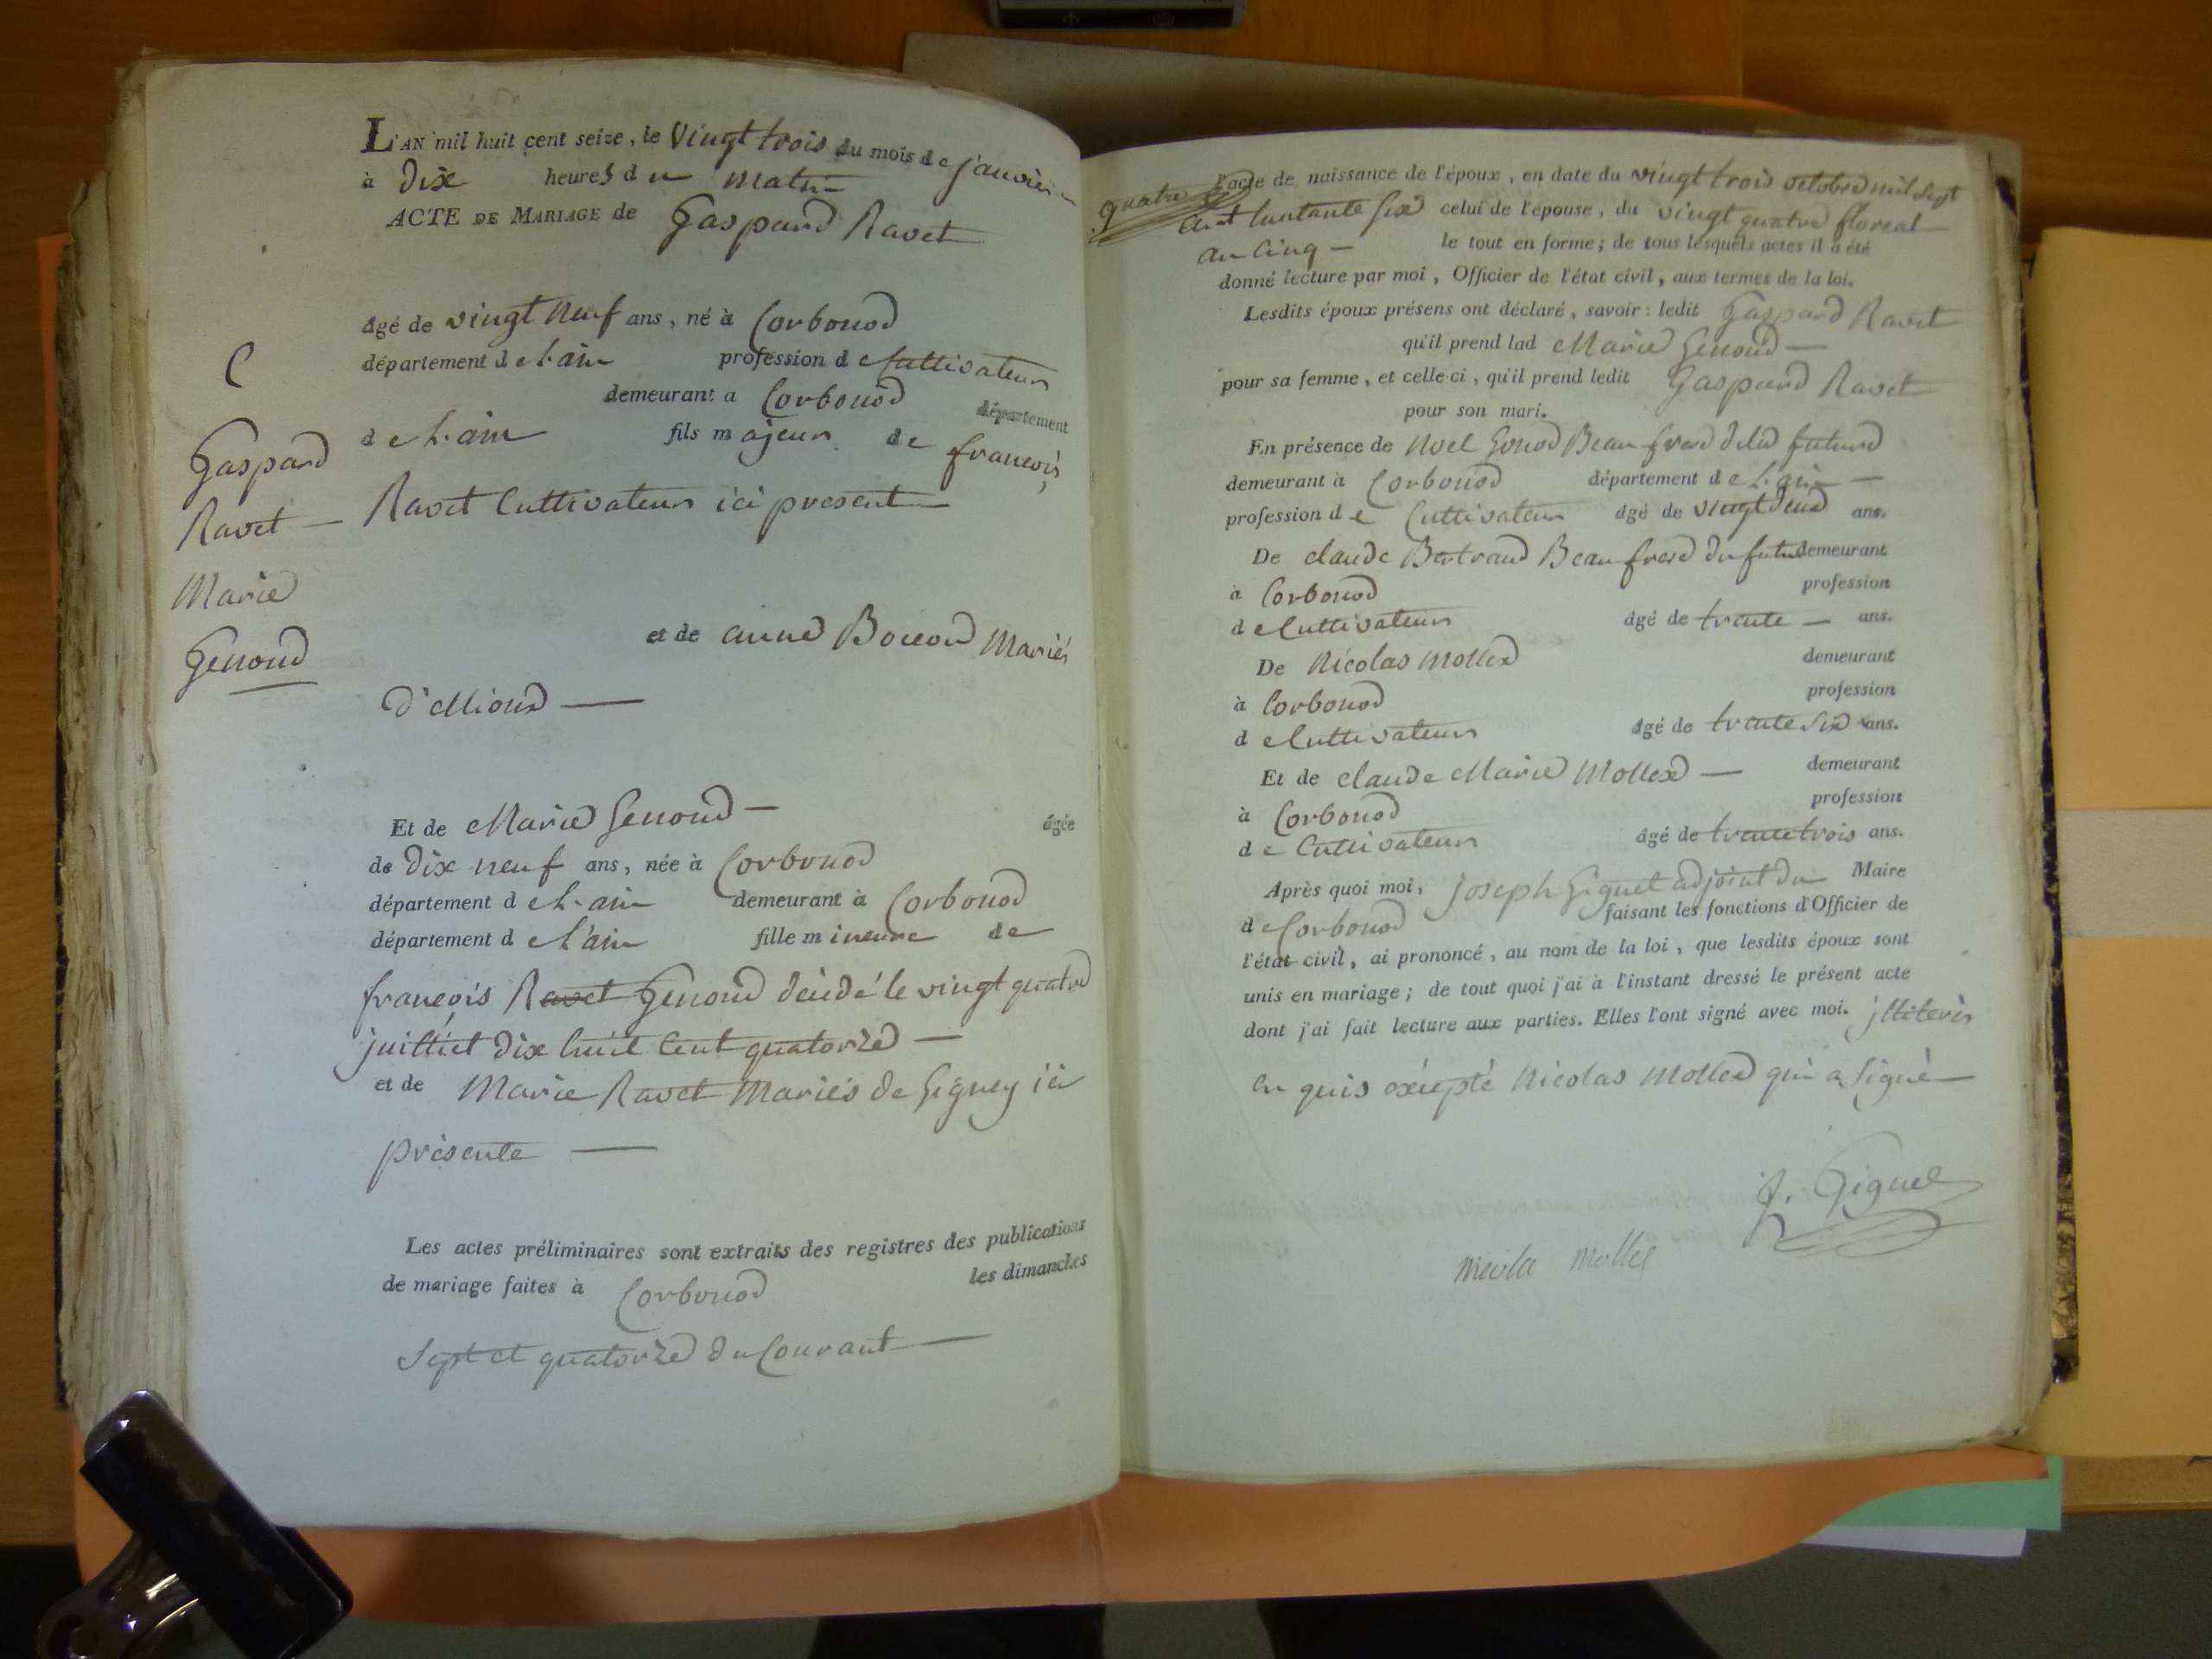 L'AN mil huit cent seize, le vingt trois du mois de janvier
à dix heures du matin
ACTE DE MARIAGE de Gaspard Ravet
âgé de vingt neuf ans, né à Corbonod
département de L'ain profession de Cultivateur
demeurant a Corbonod département
de L'ain fils majeur de françois
Ravet Cultivateur ici present
et de anne Mariés
Et de Marie Genoud âgée
de dix neuf ans, née à Corbonod
département de L'ain demeurant à Corbonod
département de L'ain fille mineure de
françois Ravet Genoud décédé le vingt quatre
juilliet dix huit Cent quatorze
et de Marie Ravet Mariés de Gigney ici
présente
Les actes préliminaires sont extraits des registres des publications
de mariage faites à Corbonod les dimanches
Sept et quatorze du Courant
C
Gaspard
Ravet
Marie
Genoud
l'acte de naissance de l'époux, en date du vingt trois octobre mil sept
quatre
Cent huitante six celui de l'épouse, du vingt quatre floreal
an Cinq le tout en forme; de tous lesquels actes il a été
donné lecture par moi, Officier de l'état civil, aux termes de la loi.
Lesdits époux présens ont déclaré, savoir: ledit Gaspard Ravet
qu'il prend lad Marie Genoud
pour sa femme, et celle-ci, qu'il prend ledit Gaspard Ravet
pour son mari.
En présence de Noel Gonod Beau frere de la future
demeurant à Corbonod département de L'ain
profession de Cultivateur âgé de vingt deux ans.
De claude Bertrand Beau frere du futur demeurant
à Corbonod profession
de Cultivateur âgé de trente ans.
De Nicolas Mollex demeurant
à Corbonod profession
de Cultivateur âgé de trente six ans.
Et de claude Marie Mollex demeurant
à Corbonod profession
de Cultivateur âgé de trente trois ans.
Après quoi moi, Joseph Giguet adjoint du Maire
de Corbonod faisant les fonctions d'Officier de
l'état civil, ai prononcé, au nom de la loi, que lesdits époux sont
unis en mariage; de tout quoi j'ai à l'instant dressé le présent acte
dont j'ai fait lecture aux parties. Elles l'ont signé avec moi. jlliterés
en quis excepté Nicolas Mollex qui a signé
J. Giguet
Nicola Mollex